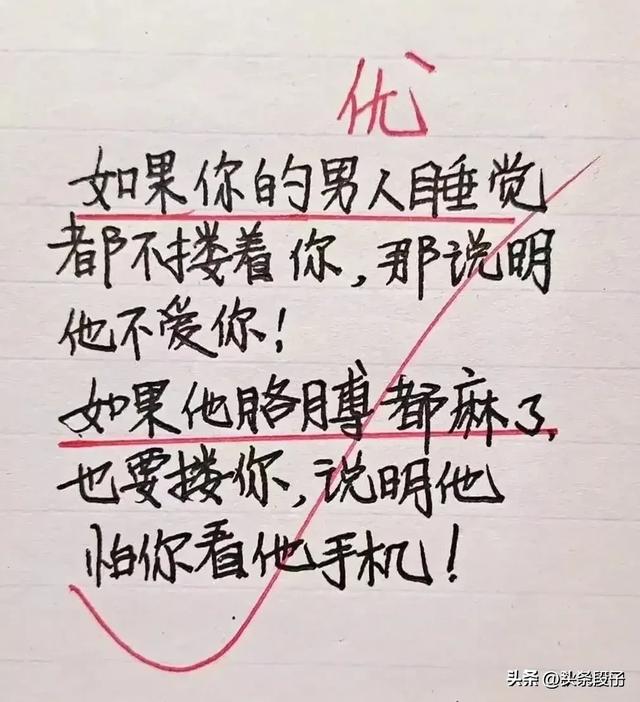 优
如果你的男人睡觉
都不搂着你,那说明
他不爱你!
如果他胳膊都麻了,
也要搂你,说明他
怕你看他手机!
头条 @头条段子